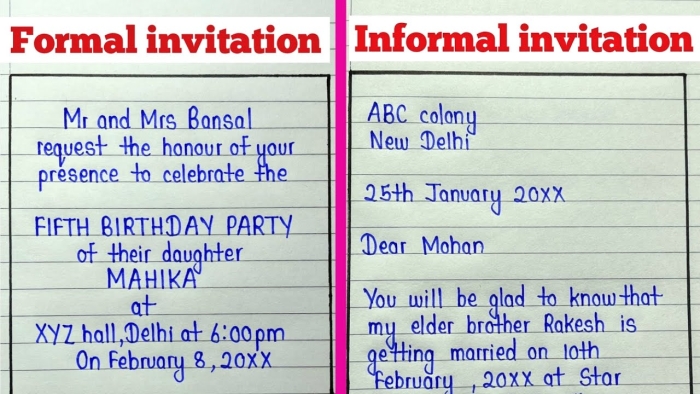 Formal invitation
Mr and Mrs Bansal
request the honour of your
presence to celebrate the
FIFTH BIRTHDAY PARTY
of their daughter
MAHIKA
at
XYZ hall,Delhi at 6:00pm
On February 8,20XX
Informal invitation
ABC colony
New Delhi
25th January 20XX
Dear Mohan
You will be glad to know that
my elder brother Rakesh is
getting married on 10th
February ,20XX at Star